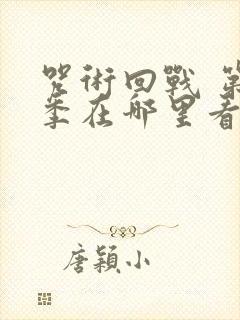 咒術回戰 第
季在哪里看
唐穎小